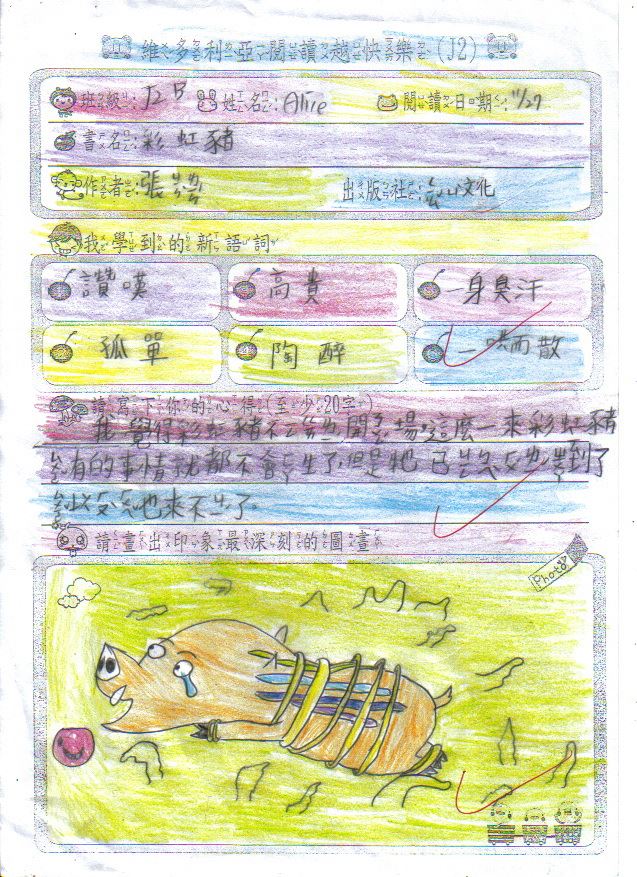 維多利亞閱讀越快樂(J2)
班級: J2B 姓名: Alice 閱讀日期: 11/27
書名: 彩虹豬
作者: 張 出版社: 文化
我學到的新語詞
讚嘆 高貴 一身臭汗
孤單 陶醉 一哄而散
請寫下你的心得(至少20字)
我覺得彩虹豬不 開 場,這麼一來彩虹豬
有的事情就都不會 生了,但是牠已 到了
也來不 了。
請畫出印象最深刻的圖畫
Photo